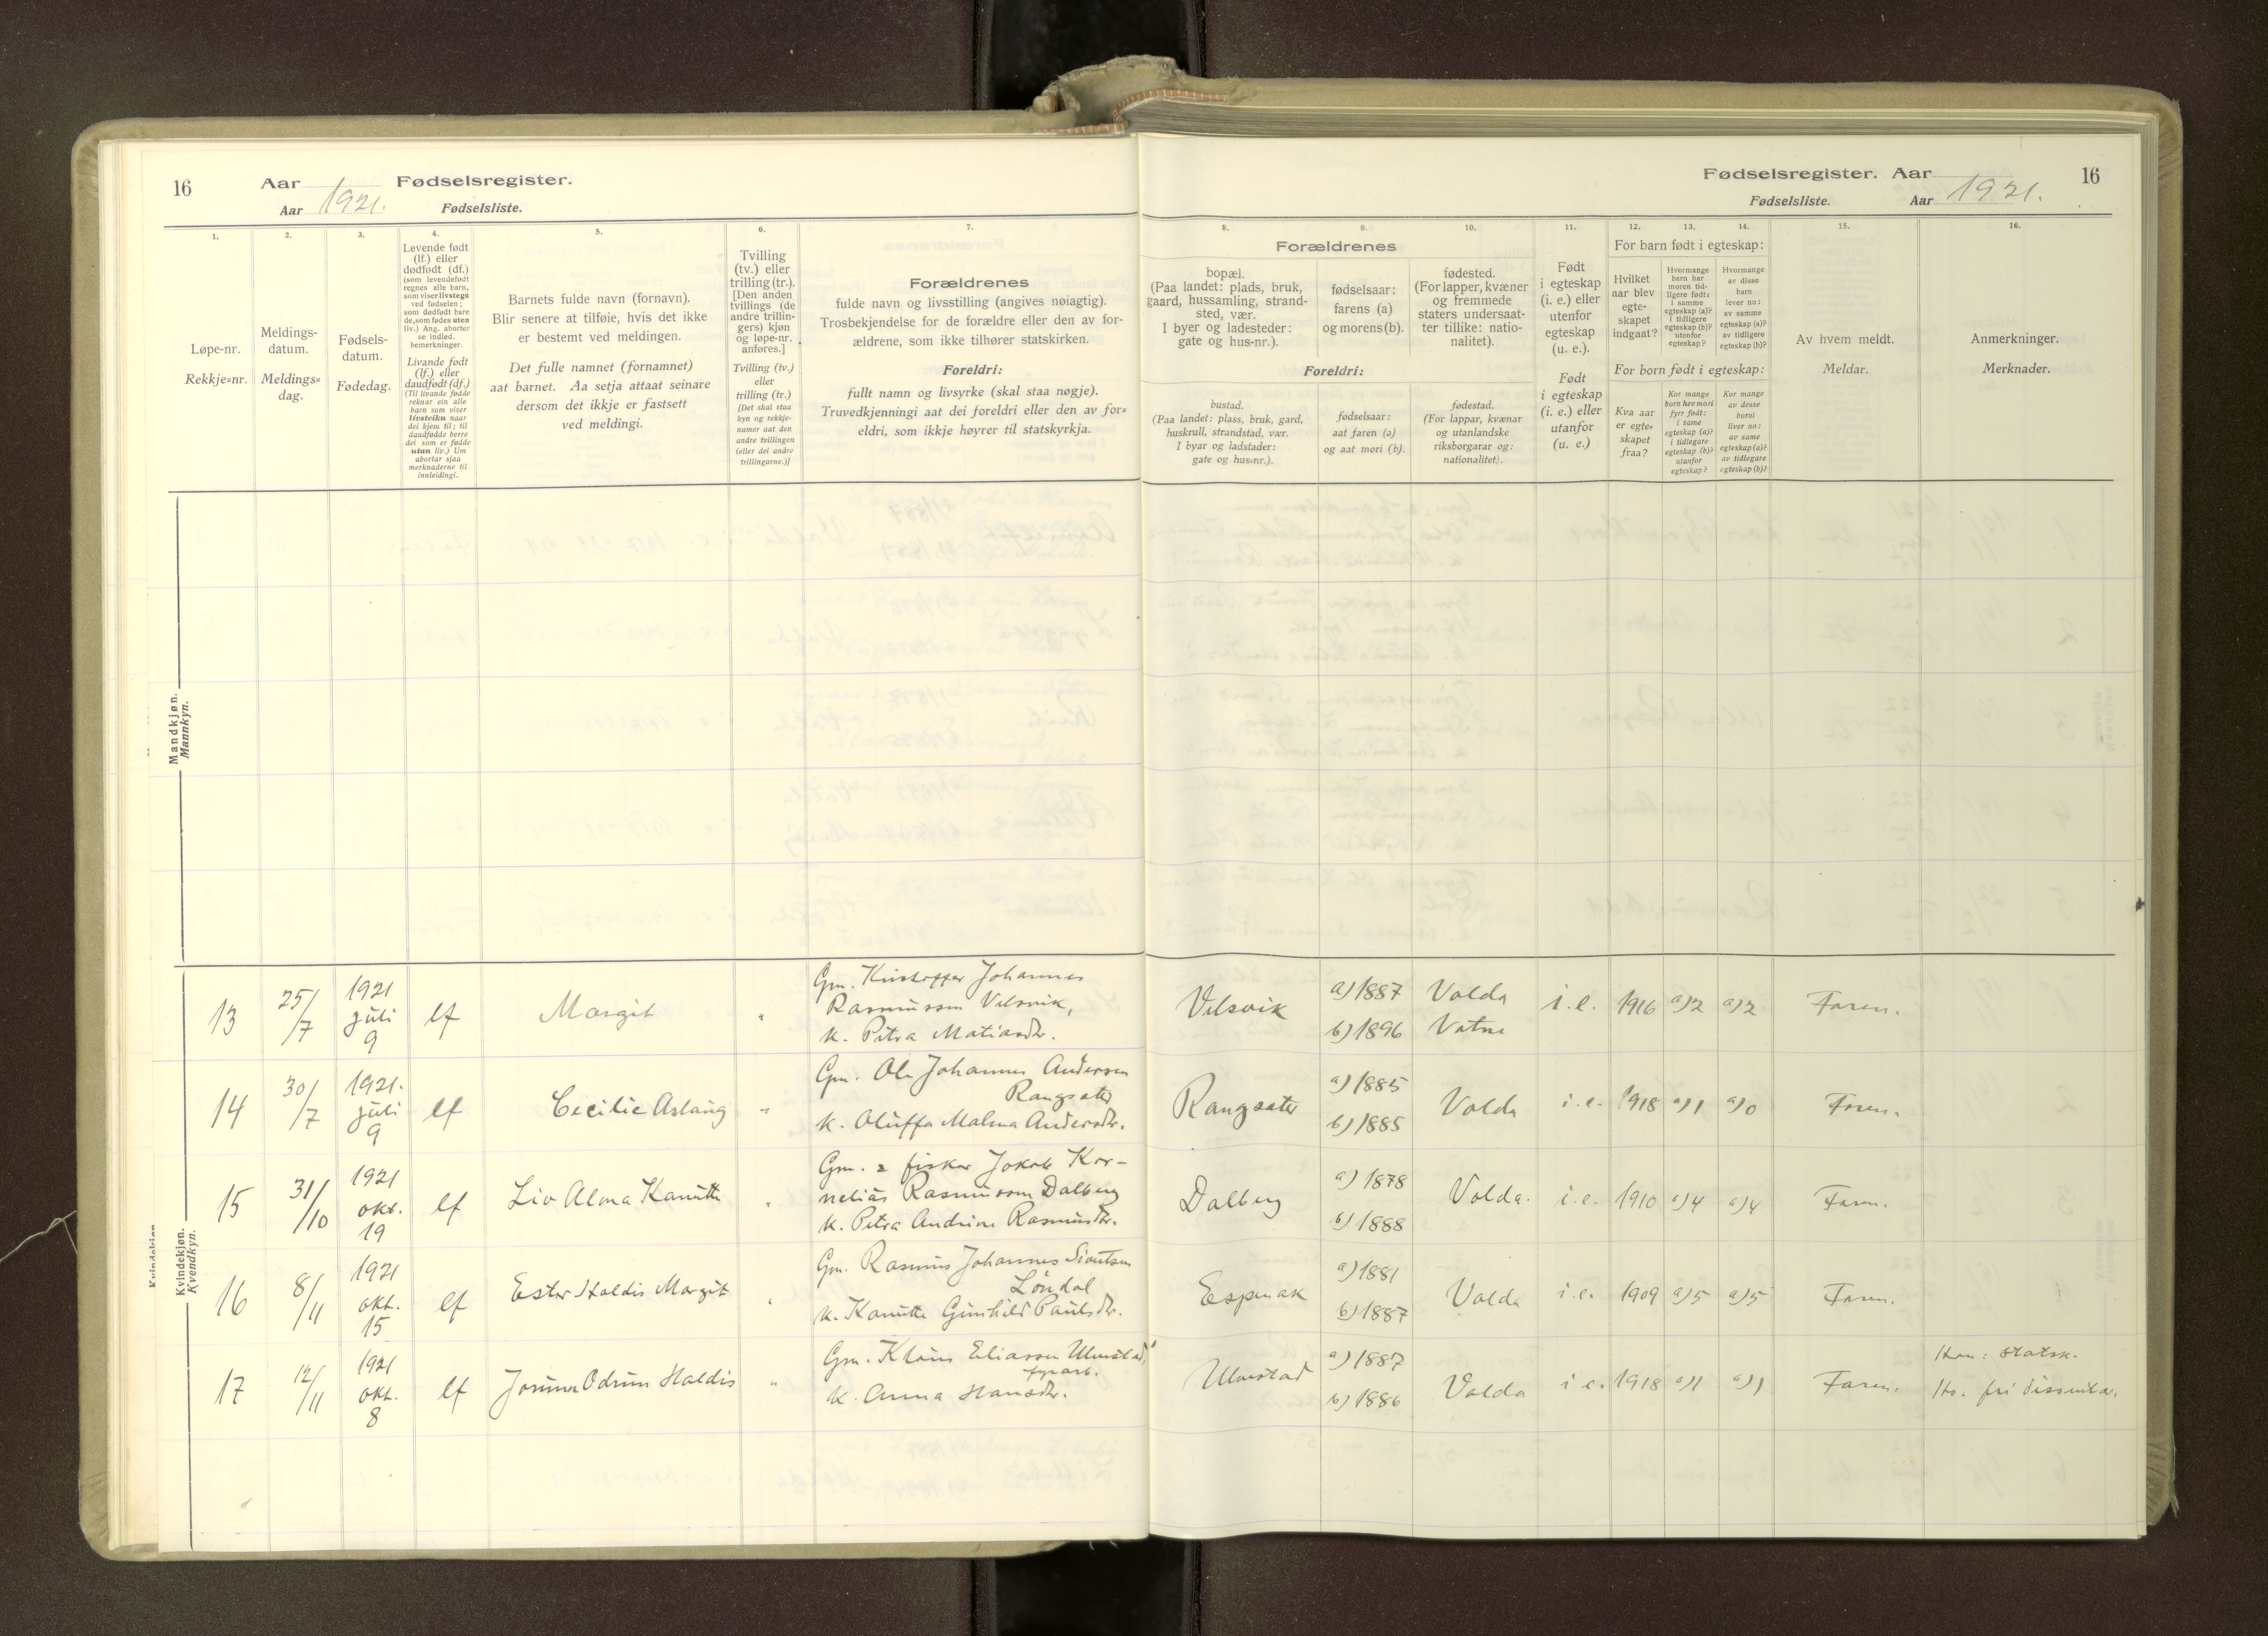 16 Aar Fødselsregister.
Aar 1921. Fødselsliste.
Fødselsregister. Aar 16
Fødselsliste. Aar 1921.
1. 2. 3. 4. 5. 6. 7.
Løpe-nr.
Rekkje-nr.
Meldings-
datum.
Meldings-
dag.
Fødsels-
datum.
Fødedag.
Levende født
(lf.) eller
dødfødt (df.)
(som levendefødt
regnes alle barn,
som viser livstegn
ved fødselen;
som dødfødt bare
de, som fødes uten
liv.) Ang. aborter
se indled.
bemerkninger.
Livande født
(lf.) eller
daudfødt (df.)
(Til livande fødde
reknar ein alle
born som viser
livsteikn naar
dei kjem til; til
daudfødde berre
dei som er fødde
utan liv.) Um
abortar sjaa
merknaderne til
innleidingi.
Barnets fulde navn (fornavn).
Blir senere at tilføie, hvis det ikke
er bestemt ved meldingen.
Det fulle namnet (fornamnet)
aat barnet. Aa setja attaat seinare
dersom det ikkje er fastsett
ved meldingi.
Tvilling
(tv.) eller
trilling (tr.).
[Den anden
tvillings (de
andre trillin-
gers) kjøn
og løpe-nr.
anføres.]
Tvilling (tv.)
eller
trilling (tr.)
[Det skal staa
kyn og rekkje-
numer aat den
andre tvillingen
(eller dei andre
trillingarne.)]
Forældrenes
fulde navn og livsstilling (angives nøiagtig).
Trosbekjendelse for de forældre eller den av for-
ældrene, som ikke tilhører statskirken.
Foreldri:
fullt namn og livsyrke (skal staa nøgje).
Truvedkjenningi aat dei foreldri eller den av for-
eldri, som ikkje høyrer til statskyrkja.
8. 9. 10. 11. 12. 13. 14. 15. 16.
Forældrenes
bopæl.
(Paa landet: plads, bruk,
gaard, hussamling, strand-
sted, vær.
I byer og ladesteder:
gate og hus-nr.).
fødselsaar:
farens (a)
og morens (b).
fødested.
(For lapper, kvæner
og fremmede
staters undersaat-
ter tillike: natio-
nalitet).
Foreldri:
bustad.
(Paa landet: plass, bruk, gard,
huskrull, strandstad, vær.
I byar og ladstader:
gate og hus-nr.).
fødselsaar:
aat faren (a)
og aat mori (b).
fødestad.
(For lappar, kvænar
og utanlandske
riksborgarar og:
nationalitet).
Født
i egteskap
(i. e.) eller
utenfor
egteskap
(u. e.).
Født
i egteskap
(i. e.) eller
utanfor
(u. e.)
For barn født i egteskap:
Hvilket
aar blev
egte-
skapet
indgaat?
Hvormange
barn har
moren tid-
ligere født:
i samme
egteskap (a)?
i tidligere
egteskap (b)?
utenfor
egteskap?
Hvormange
av disse
barn
lever nu:
av samme
egteskap (a)?
av tidligere
egteskap (b)?
For born født i egteskap:
Kva aar
er egte-
skapet
fraa?
Kor mange
born hev mori
fyrr født:
i same
egteskap (a)?
i tidlegare
egteskap (b)?
utanfor
egteskap?
Kor mange
av desse
borni
liver no:
av same
egteskap (a)?
av tidlegare
egteskap (b)?
Av hvem meldt.
Meldar.
Anmerkninger.
Merknader.
Mandkjøn.
Mannkyn.
Kvindekjøn.
Kvendkyn.
13 25/7 1921 juli 9 lf Margit " Gm. Kristoffer Johannes
Rasmussen Velsvik,
k. Petra Matiasdr.
Velsvik a) 1887 b) 1896 Volda Vatne i. e. 1916 a) 2 a) 2 Faren.
14 30/7 1921. juli 9 lf Cecilie Aslaug " Gm. Ole Johannes Andersen
Rangsæter
k. Oluffa Malma Andersdr.
Rangsæter a) 1885 b) 1885 Volda i. e. 1918 a) 1 a) 0 Faren.
15 31/10 1921 okt. 19 lf Liv Alma Kanutte " Gm. & fisker Jokob Kor-
nelius Rasmussen Dalberg
k. Petra Andrine Rasmusdr.
Dalberg a) 1878 b) 1888 Volda. i. e. 1910 a) 4 a) 4 Faren.
16 8/11 1921 okt. 15 lf Ester Haldis Margit " Gm. Rasmus Johannes Sivertsen
Løndal
k. Kanutte Gunhild Paulsdr.
Espenak a) 1881 b) 1887 Volda i. e. 1909 a) 5 a) 5 Faren.
17 12/11 1921 okt. 8 lf Jorunn Odrun Haldis " Gm. Klaus Eliassen Ulvestad,
fyrarb.
k. Anna Hansdr.
Ulvestad a) 1887 b) 1886 Volda i e. 1918 a) 1 a) 1 Faren. Han: statsk.
Ho: fri dissenter.